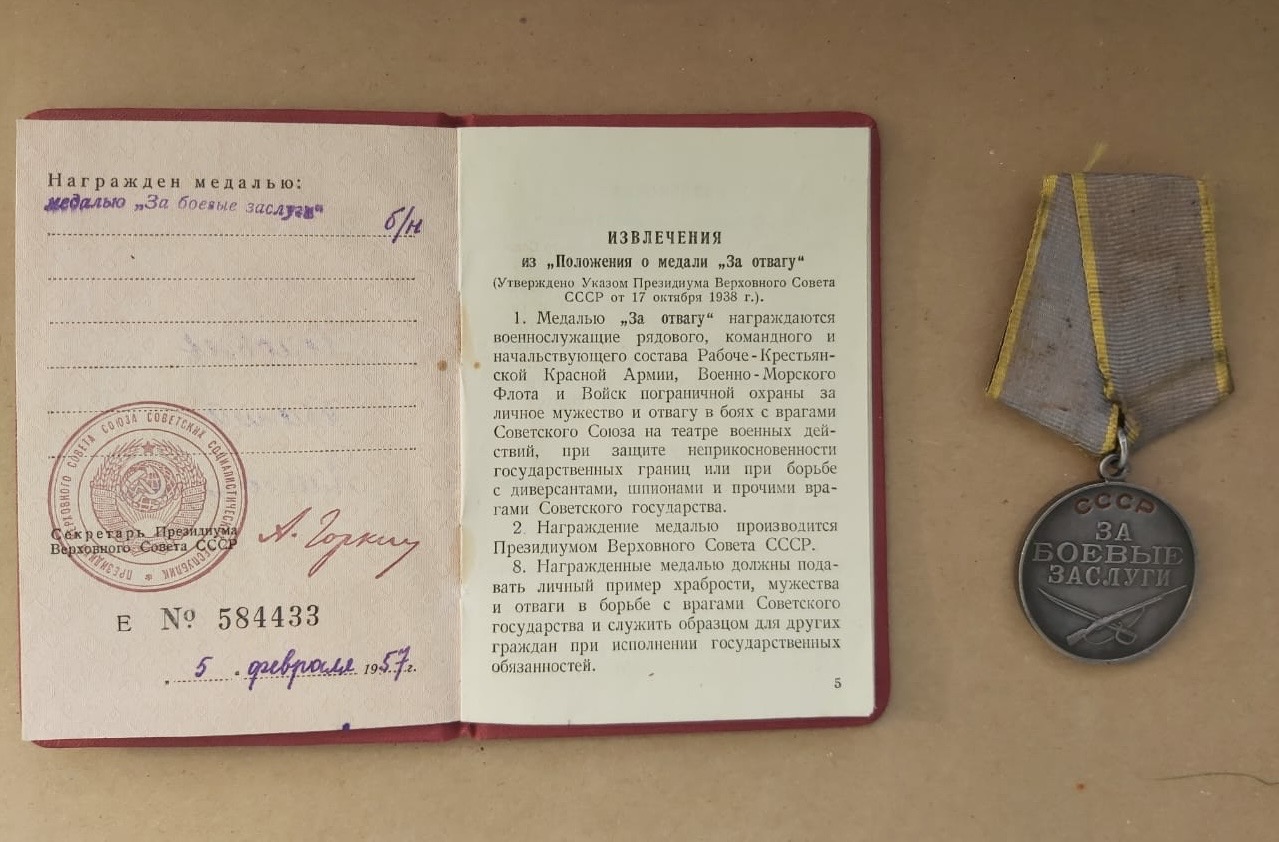 Награжден медалью:
медалью „За боевые заслуги“
б/н
ПРЕЗИДИУМ ВЕРХОВНОГО СОВЕТА СОЮЗА СОВЕТСКИХ СОЦИАЛИСТИЧЕСКИХ РЕСПУБЛИК *
Секретарь Президиума
Верховного Совета СССР
А. Горкин
Е № 584433
5 февраля 1957 г.
ИЗВЛЕЧЕНИЯ
из „Положения о медали „За отвагу“
(Утверждено Указом Президиума Верховного Совета
СССР от 17 октября 1938 г.).
1. Медалью „За отвагу“ награждаются
военнослужащие рядового, командного и
начальствующего состава Рабоче-Крестьян-
ской Красной Армии, Военно-Морского
Флота и Войск пограничной охраны за
личное мужество и отвагу в боях с врагами
Советского Союза на театре военных дей-
ствий, при защите неприкосновенности
государственных границ или при борьбе
с диверсантами, шпионами и прочими вра-
гами Советского государства.
2. Награждение медалью производится
Президиумом Верховного Совета СССР.
8. Награжденные медалью должны пода-
вать личный пример храбрости, мужества
и отваги в борьбе с врагами Советского
государства и служить образцом для других
граждан при исполнении государственных
обязанностей.
5
СССР
ЗА
БОЕВЫЕ
ЗАСЛУГИ